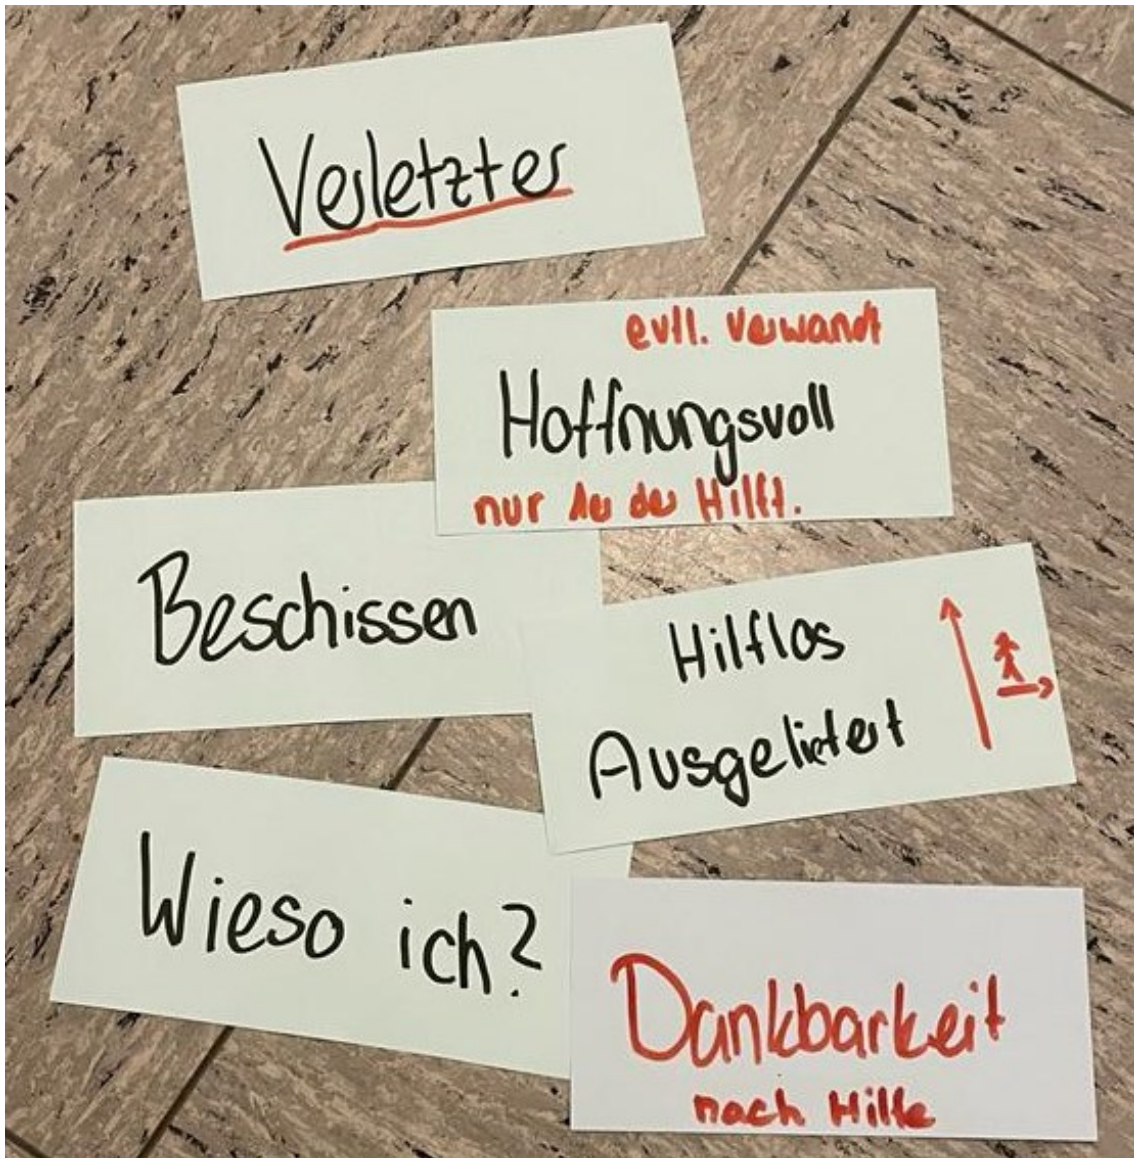 Verletzter
evtl. verwandt
Hoffnungsvoll
nur der der Hilft.
Beschissen
Hilflos
Ausgeliefert
Wieso ich?
Dankbarkeit
nach Hilfe